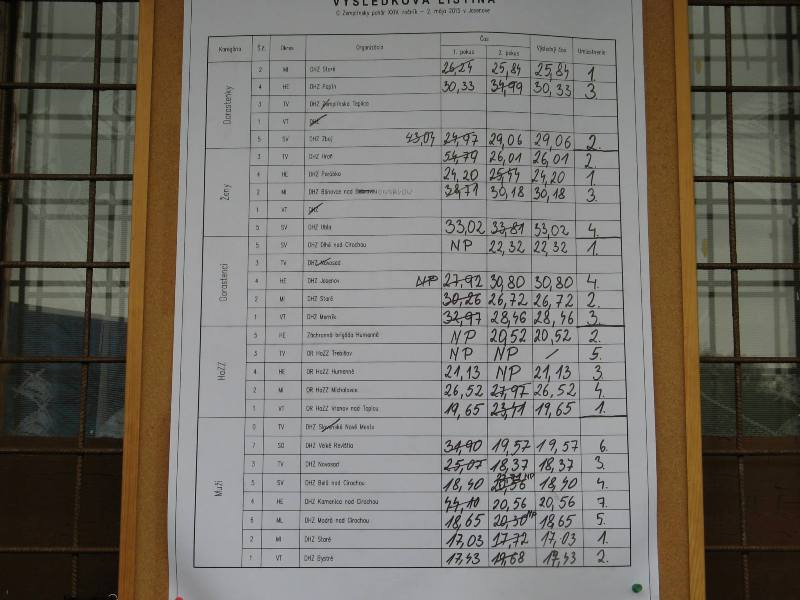 VÝSLEDKOVÁ LISTINA
© Zemplínsky pohár XXIV. ročník - 2. mája 2015 v Jasenove
Kategória Š.č. Okres Organizácia Čas Výsledný čas Umiestnenie
1. pokus 2. pokus
Dorastenky
2 MI DHZ Staré 26,24 25,84 25,84 1.
4 HE DHZ Papín 30,33 34,99 30,33 3.
3 TV DHZ Zemplínska Teplica
1 VT DHZ
5 SV DHZ Zboj 43,04 24,97 29,06 29,06 2.
Ženy
3 TV DHZ Hraň 54,79 26,01 26,01 2.
4 HE DHZ Porúbka 24,20 25,44 24,20 1
2 MI DHZ Bánovce nad 38,71 30,18 30,18 3.
1 VT DHZ
5 SV DHZ Ubľa 33,02 33,81 33,02 4.
Dorastenci
5 SV DHZ Dlhé nad Cirochou NP 22,32 22,32 1.
3 TV DHZ Novosad
4 HE DHZ Jasenov NP 27,92 30,80 30,80 4.
2 MI DHZ Staré 30,26 26,72 26,72 2.
1 VT DHZ Merník 32,97 28,46 28,46 3.
HaZZ
5 HE Záchranná brigáda Humenné NP 20,52 20,52 2.
3 TV OR HaZZ Trebišov NP NP / 5.
4 HE OR HaZZ Humenné 21,13 NP 21,13 3.
2 MI OR HaZZ Michalovce 26,52 27,97 26,52 4.
1 VT OR HaZZ Vranov nad Topľou 19,65 23,41 19,65 1.
Muži
0 TV DHZ Slovenské Nové Mesto
7 SO DHZ Veľké Revištia 31,90 19,57 19,57 6.
3 TV DHZ Novosad 25,07 18,37 18,37 3.
5 SV DHZ Belá nad Cirochou 18,40 20,56 NP 18,40 4.
4 HE DHZ Kamenica nad Cirochou 44,10 20,56 20,56 7.
6 ML DHZ Modrá nad Cirochou 18,65 20,30 NP 18,65 5.
2 MI DHZ Staré 17,03 17,72 17,03 1.
1 VT DHZ Bystré 17,43 19,68 17,43 2.